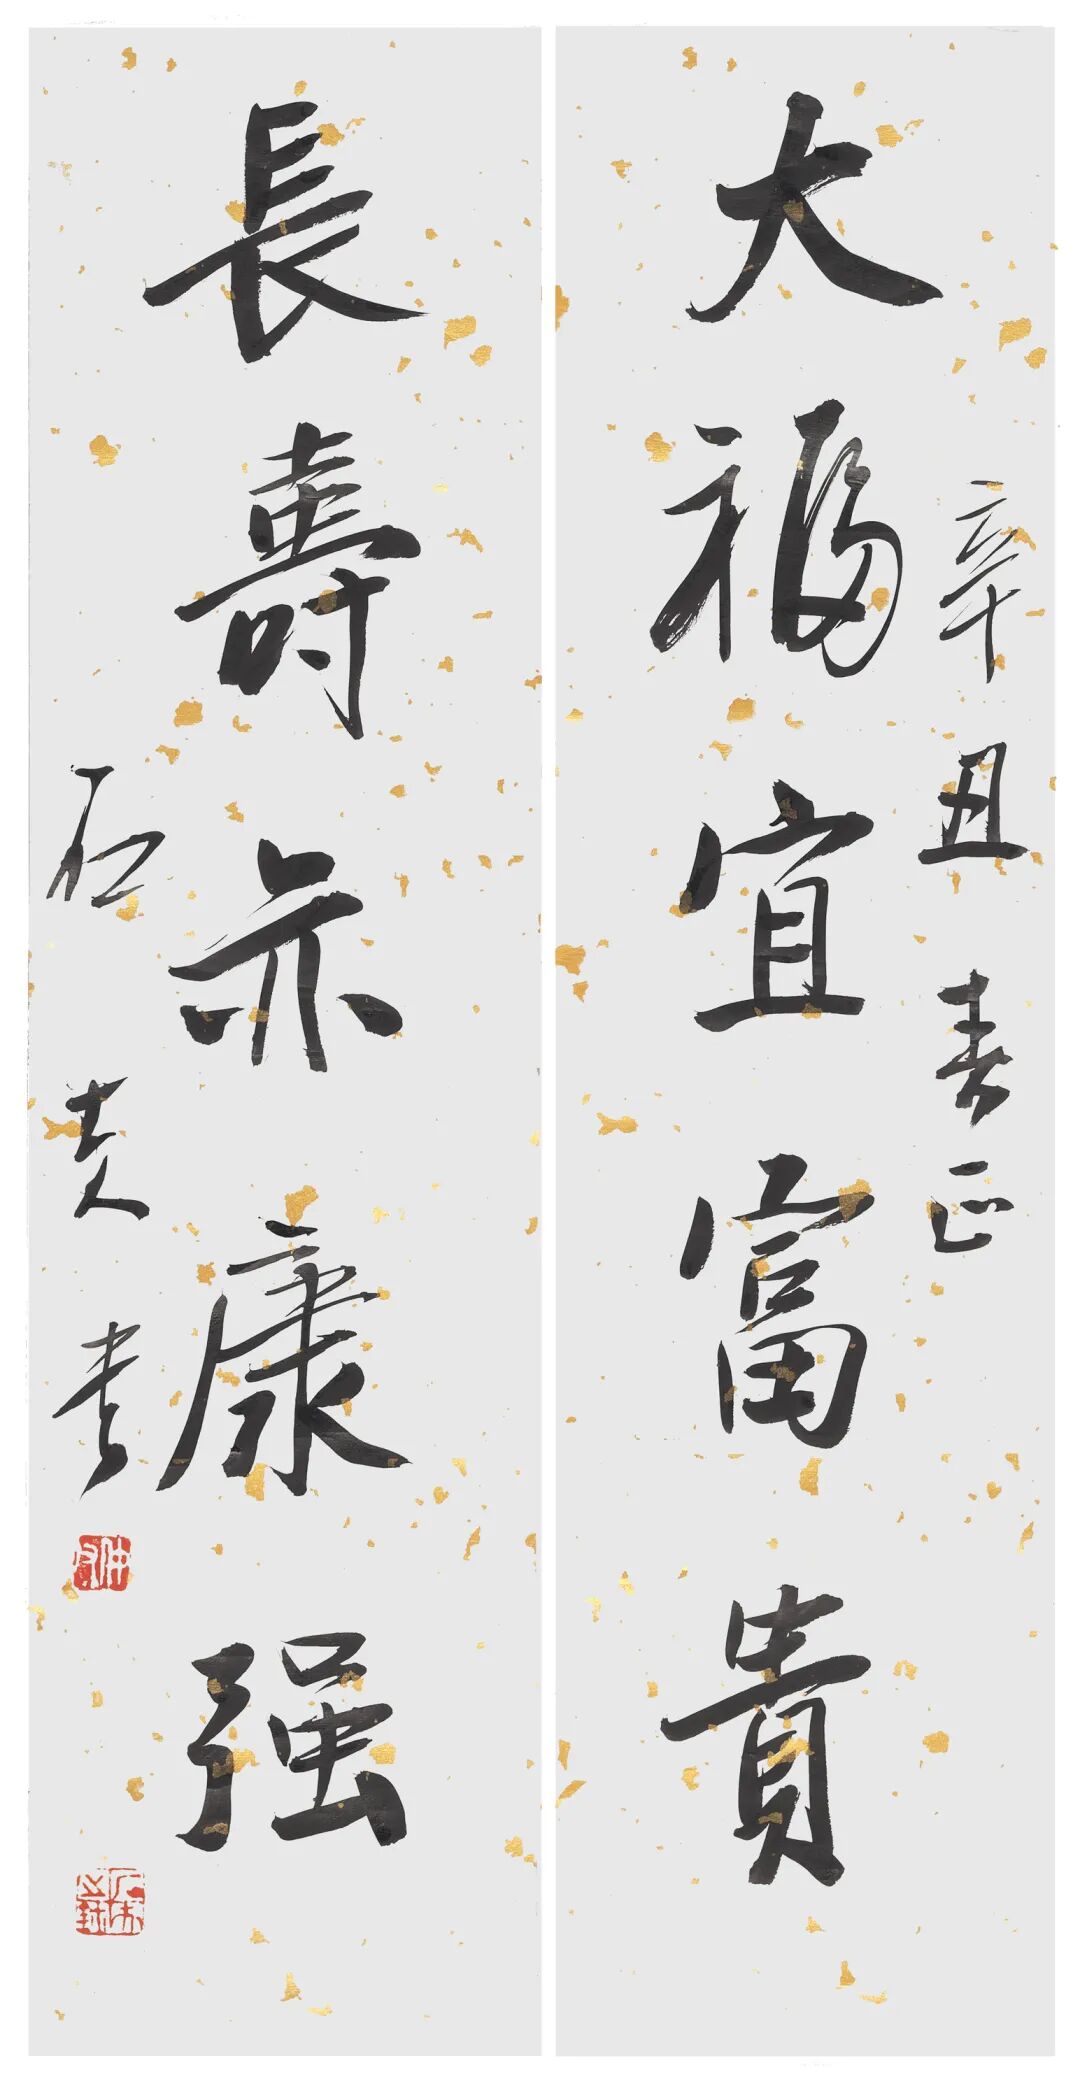 大福宜富貴
辛丑春正
長壽亦康强
石夫書